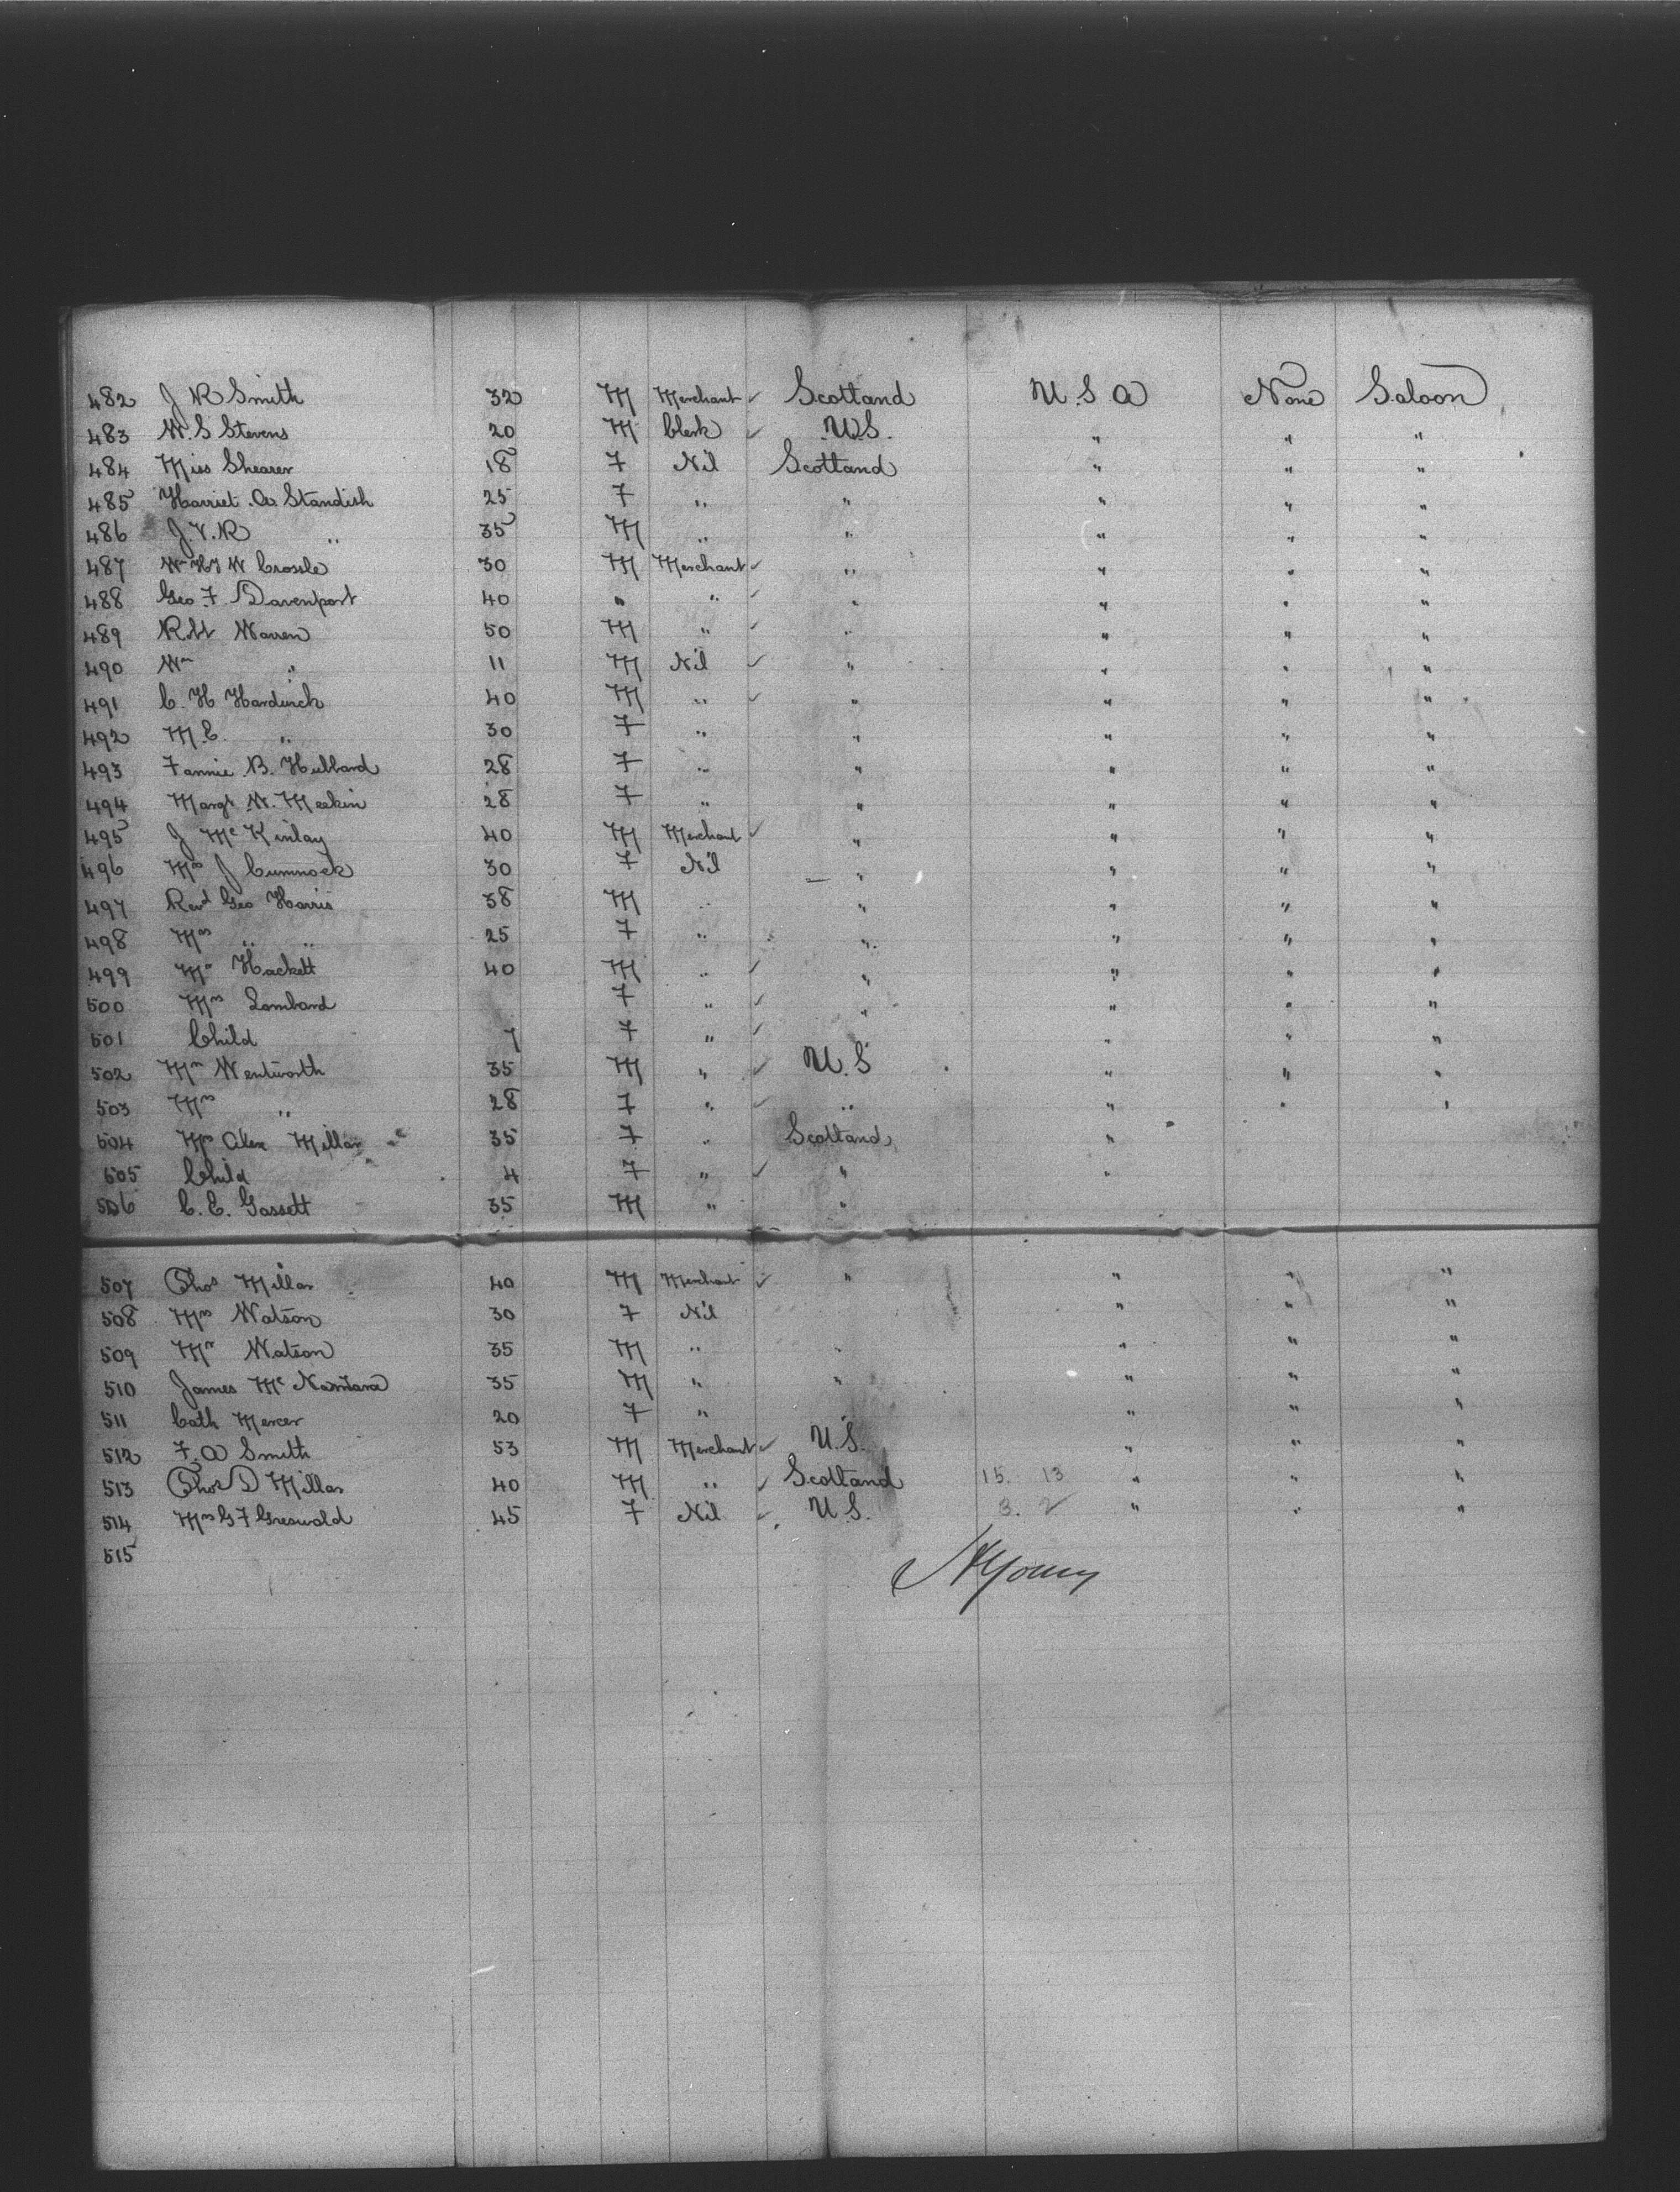 482 J R Smith 32 M Merchant ✓ Scotland U.S.A None Saloon
483 W. S Stevens 20 M Clerk ✓ U.S. " " "
484 Miss Shearer 18 F Nil Scotland " " "
485 Harriet A. Standish 25 F " " " " "
486 J. V. R " 35 M " " " " "
487 Wm W Crossle 30 M Merchant ✓ " " " "
488 Geo F Davenport 40 " " ✓ " " " "
489 Robt Warren 50 M " ✓ " " " "
490 Wm " 11 M Nil ✓ " " " "
491 C. H Hardwick 40 M " ✓ " " " "
492 M. E. " 30 F " " " " "
493 Fannie B. Hubbard 28 F " " " " "
494 Margt W. Meekin 28 F " " " " "
495 J McKinlay 40 M Merchant ✓ " " " "
496 Mrs J Cumnock 30 F Nil " " " "
497 Revd Geo Harris 38 M " " " " "
498 Mrs " " 25 F " " " " "
499 Mr Hackett 40 M " ✓ " " " "
500 Mrs Lombard F " ✓ " " " "
501 Child 7 F " ✓ " " "
502 Mr Wentworth 35 M " ✓ U.S " " "
503 Mrs " 28 F " ✓ " " " "
504 Mrs Alex Millar 35 F " Scotland "
505 Child 4 F " ✓ " "
506 C. E. Gassett 35 M " "
507 Thos Millar 40 M Merchant ✓ " " " "
508 Mrs Watson 30 F Nil " " "
509 Mr Watson 35 M " " " " "
510 James McNamara 35 M " " " " "
511 Cath Mercer 20 F " " " "
512 F. A Smith 53 M Merchant ✓ U.S. " " "
513 Thos D Millar 40 M " ✓ Scotland 15. 13 " " "
514 Mrs G F Greswold 45 F Nil ✓ U.S. 3. 2 " " "
515
Young